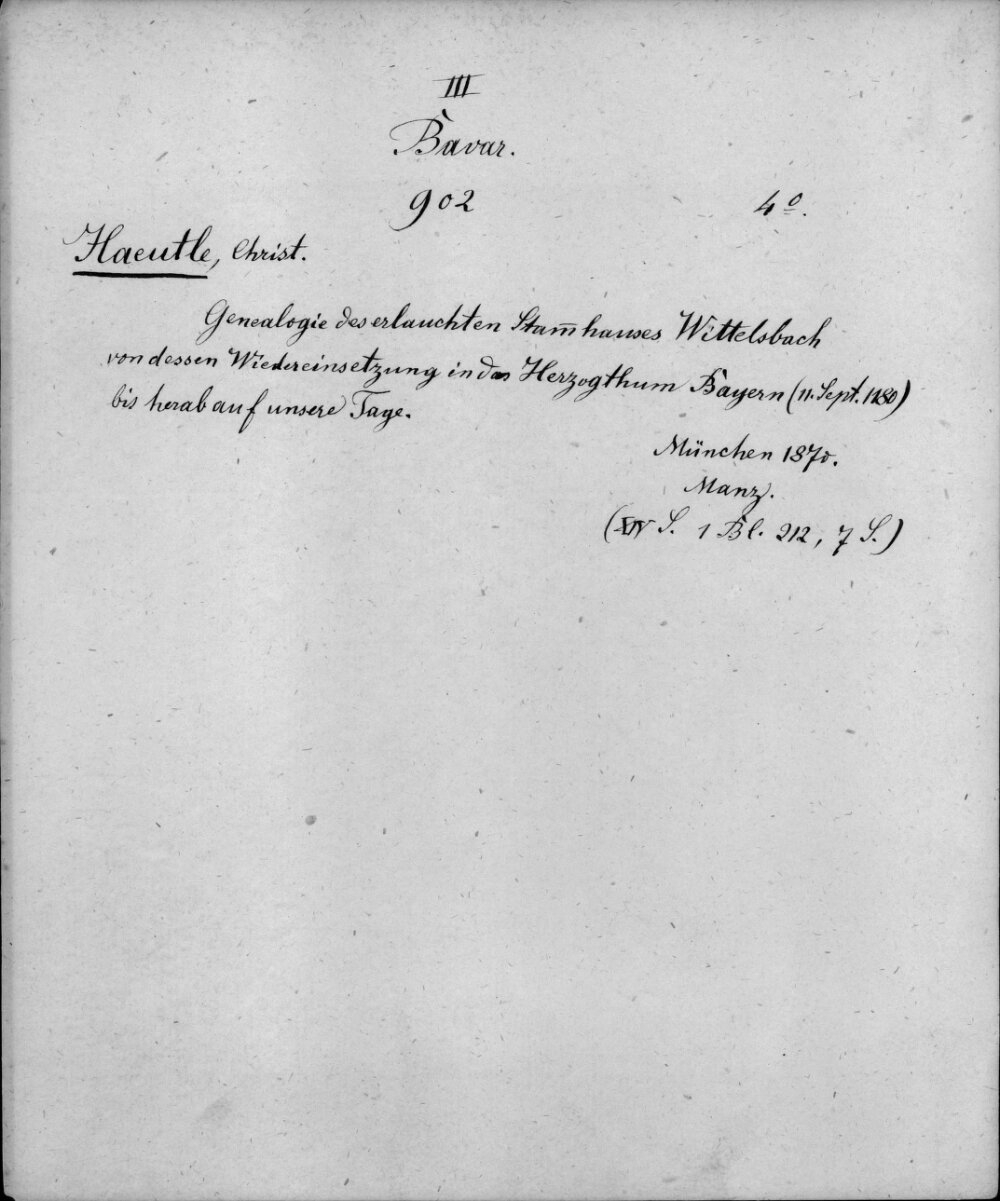 III
Bavar.
902 4º.
Haeutle, Christ.
Genealogie des erlauchten Stam̅hauses Wittelsbach
von dessen Wiedereinsetzung in das Herzogthum Bayern (11. Sept. 1180)
bis herab auf unsere Tage.
München 1870.
Manz.
(XIV S. 1 Bl. 212, 7 S.)